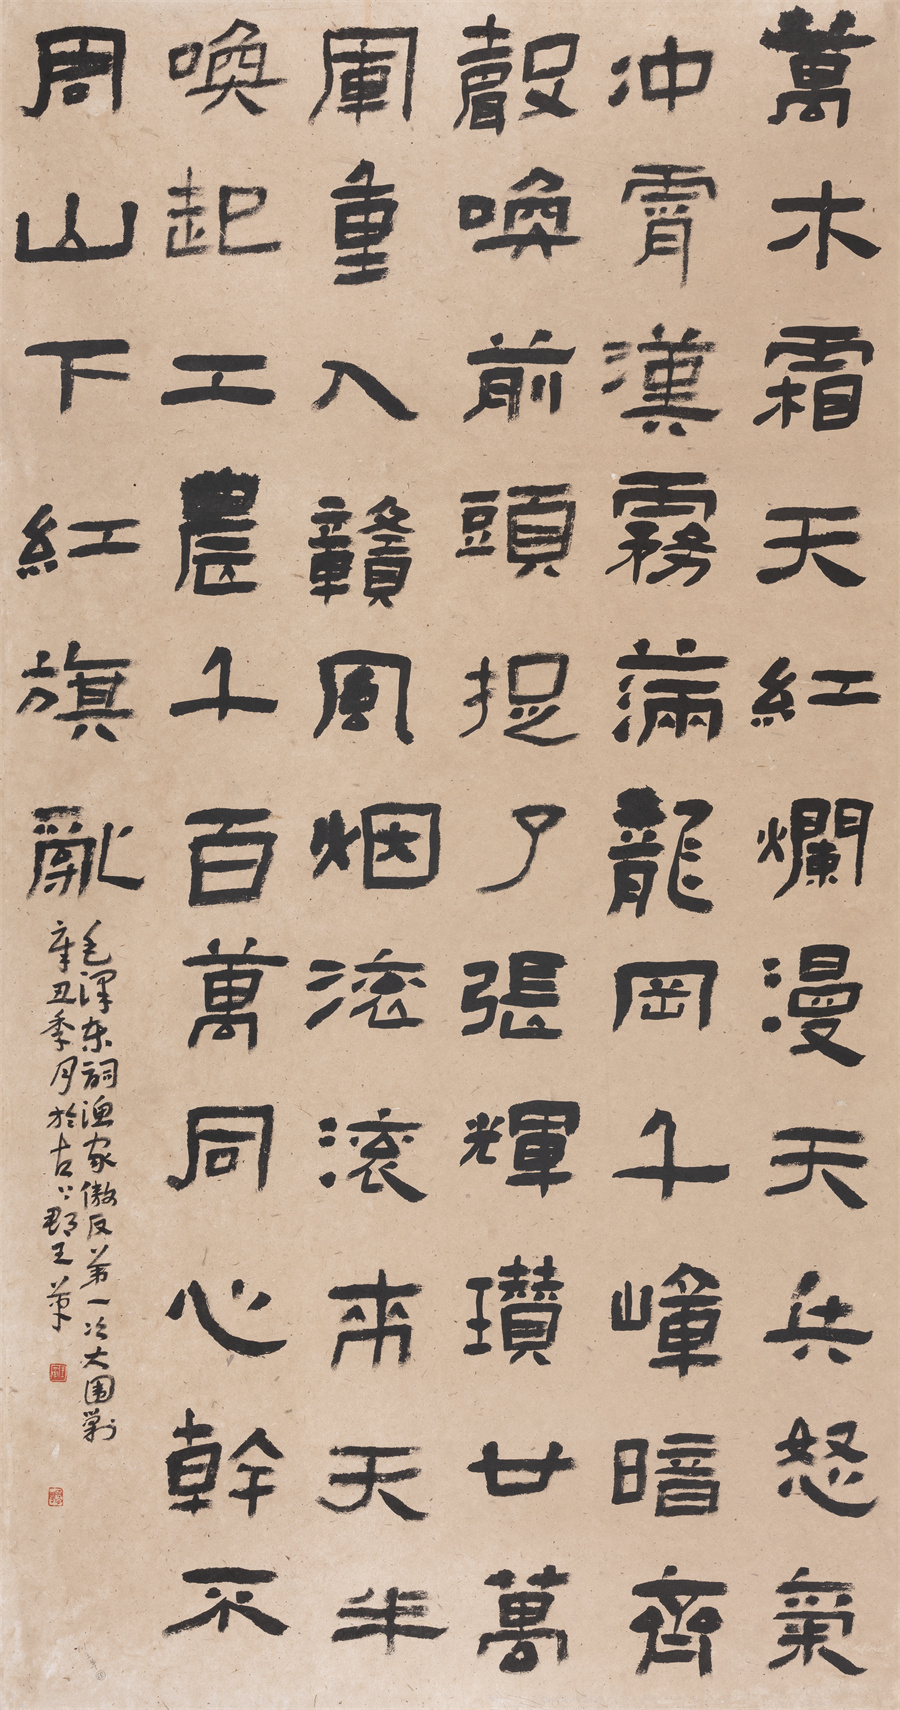 萬木霜天紅爛漫天兵怒氣
沖霄漢霧滿龍岡千嶂暗齊
聲喚前頭捉了張輝瓚廿萬
軍重入贛風烟滾滾來天半
喚起工農千百萬同心幹不
周山下紅旗亂
毛澤东詞渔家傲反第一次大围剿
辛丑季月於古上郡王